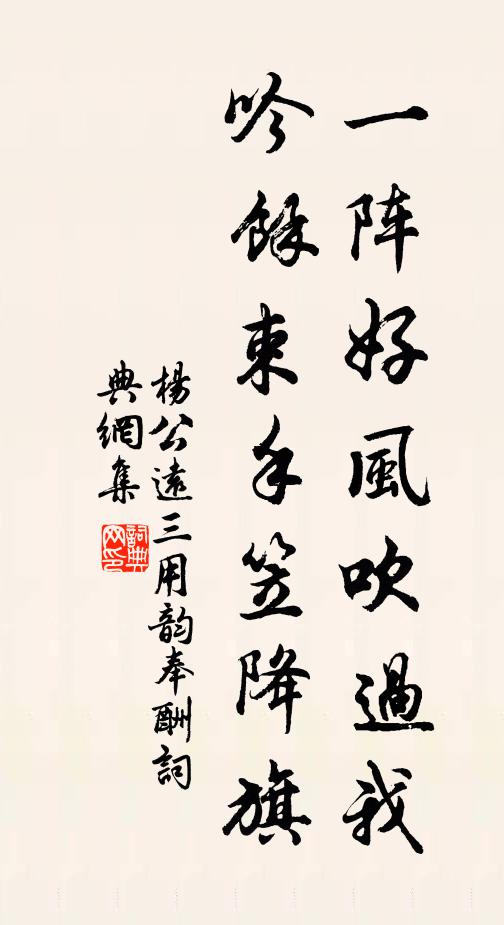 一阵好風吹過我
吟餘束手笠降旗
楊公遠三用韵奉酬詞
典網集
詞典网印